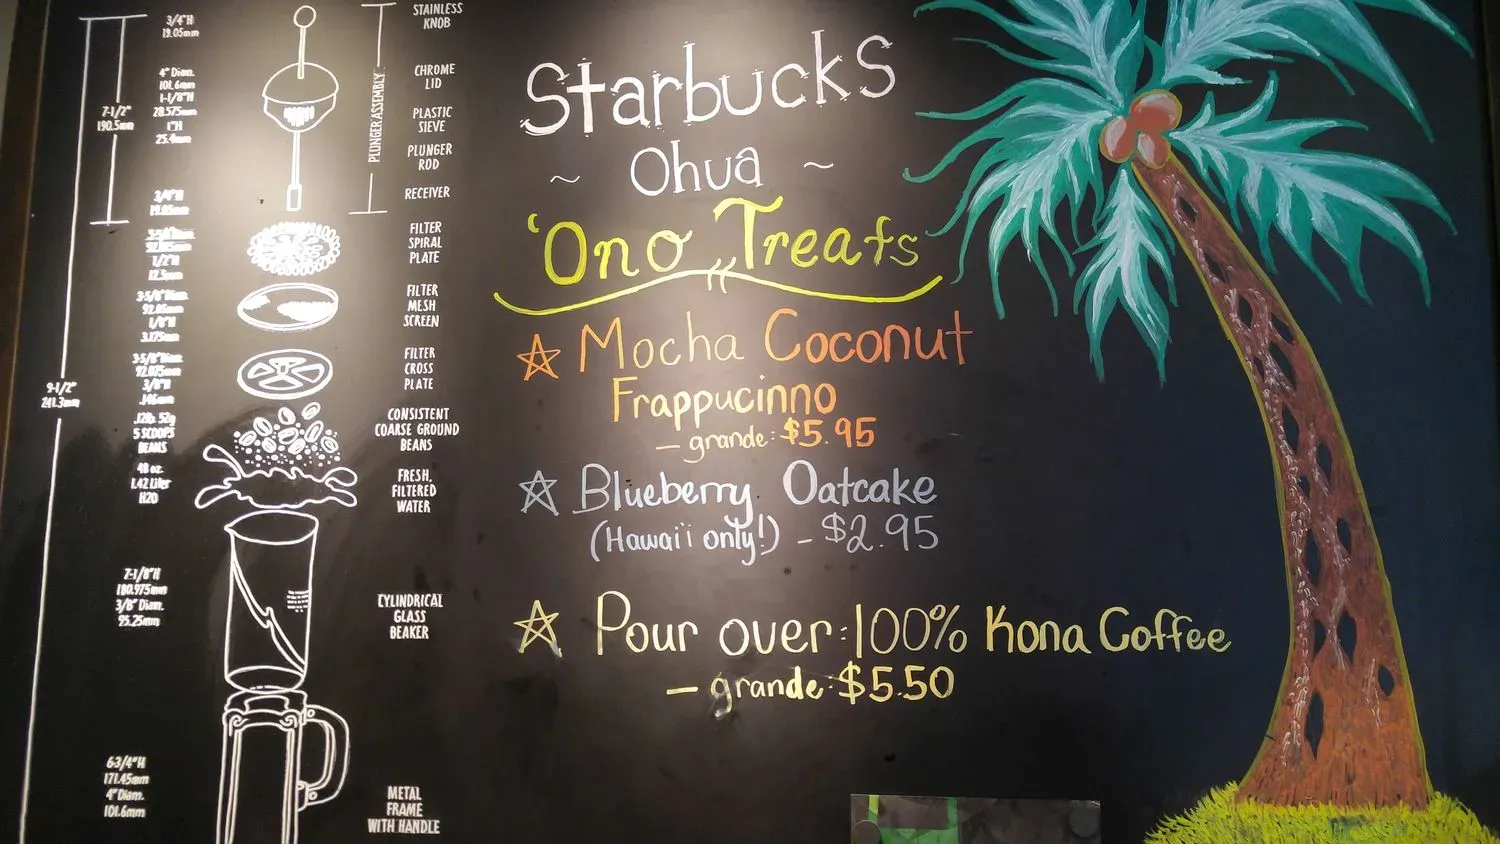 3/4"H
19.05mm
4" Diam.
101.6mm
1-1/8"H
28.575mm
1"H
25.4mm
7-1/2"
190.5mm
3/4"H
19.05mm
1/2"H
12.5mm
3-5/8" Diam.
1/8"H
3.175mm
3-5/8" Diam.
3/8"H
9-1/2"
241.3mm
.12lb. 52g
5 SCOOPS
BEANS
48 oz.
1.42 Liter
H2O
7-1/8"H
180.975mm
3/8" Diam.
95.25mm
6-3/4"H
171.45mm
4" Diam.
101.6mm
PLUNGER ASSEMBLY
STAINLESS
KNOB
CHROME
LID
PLASTIC
SIEVE
PLUNGER
ROD
RECEIVER
FILTER
SPIRAL
PLATE
FILTER
MESH
SCREEN
FILTER
CROSS
PLATE
CONSISTENT
COARSE GROUND
BEANS
FRESH,
FILTERED
WATER
CYLINDRICAL
GLASS
BEAKER
METAL
FRAME
WITH HANDLE
Starbucks
~ Ohua ~
'Ono Treats
☆ Mocha Coconut
Frappucinno
- grande: $5.95
☆ Blueberry Oatcake
(Hawai'i only!) - $2.95
☆ Pour over: 100% Kona Coffee
- grande: $5.50